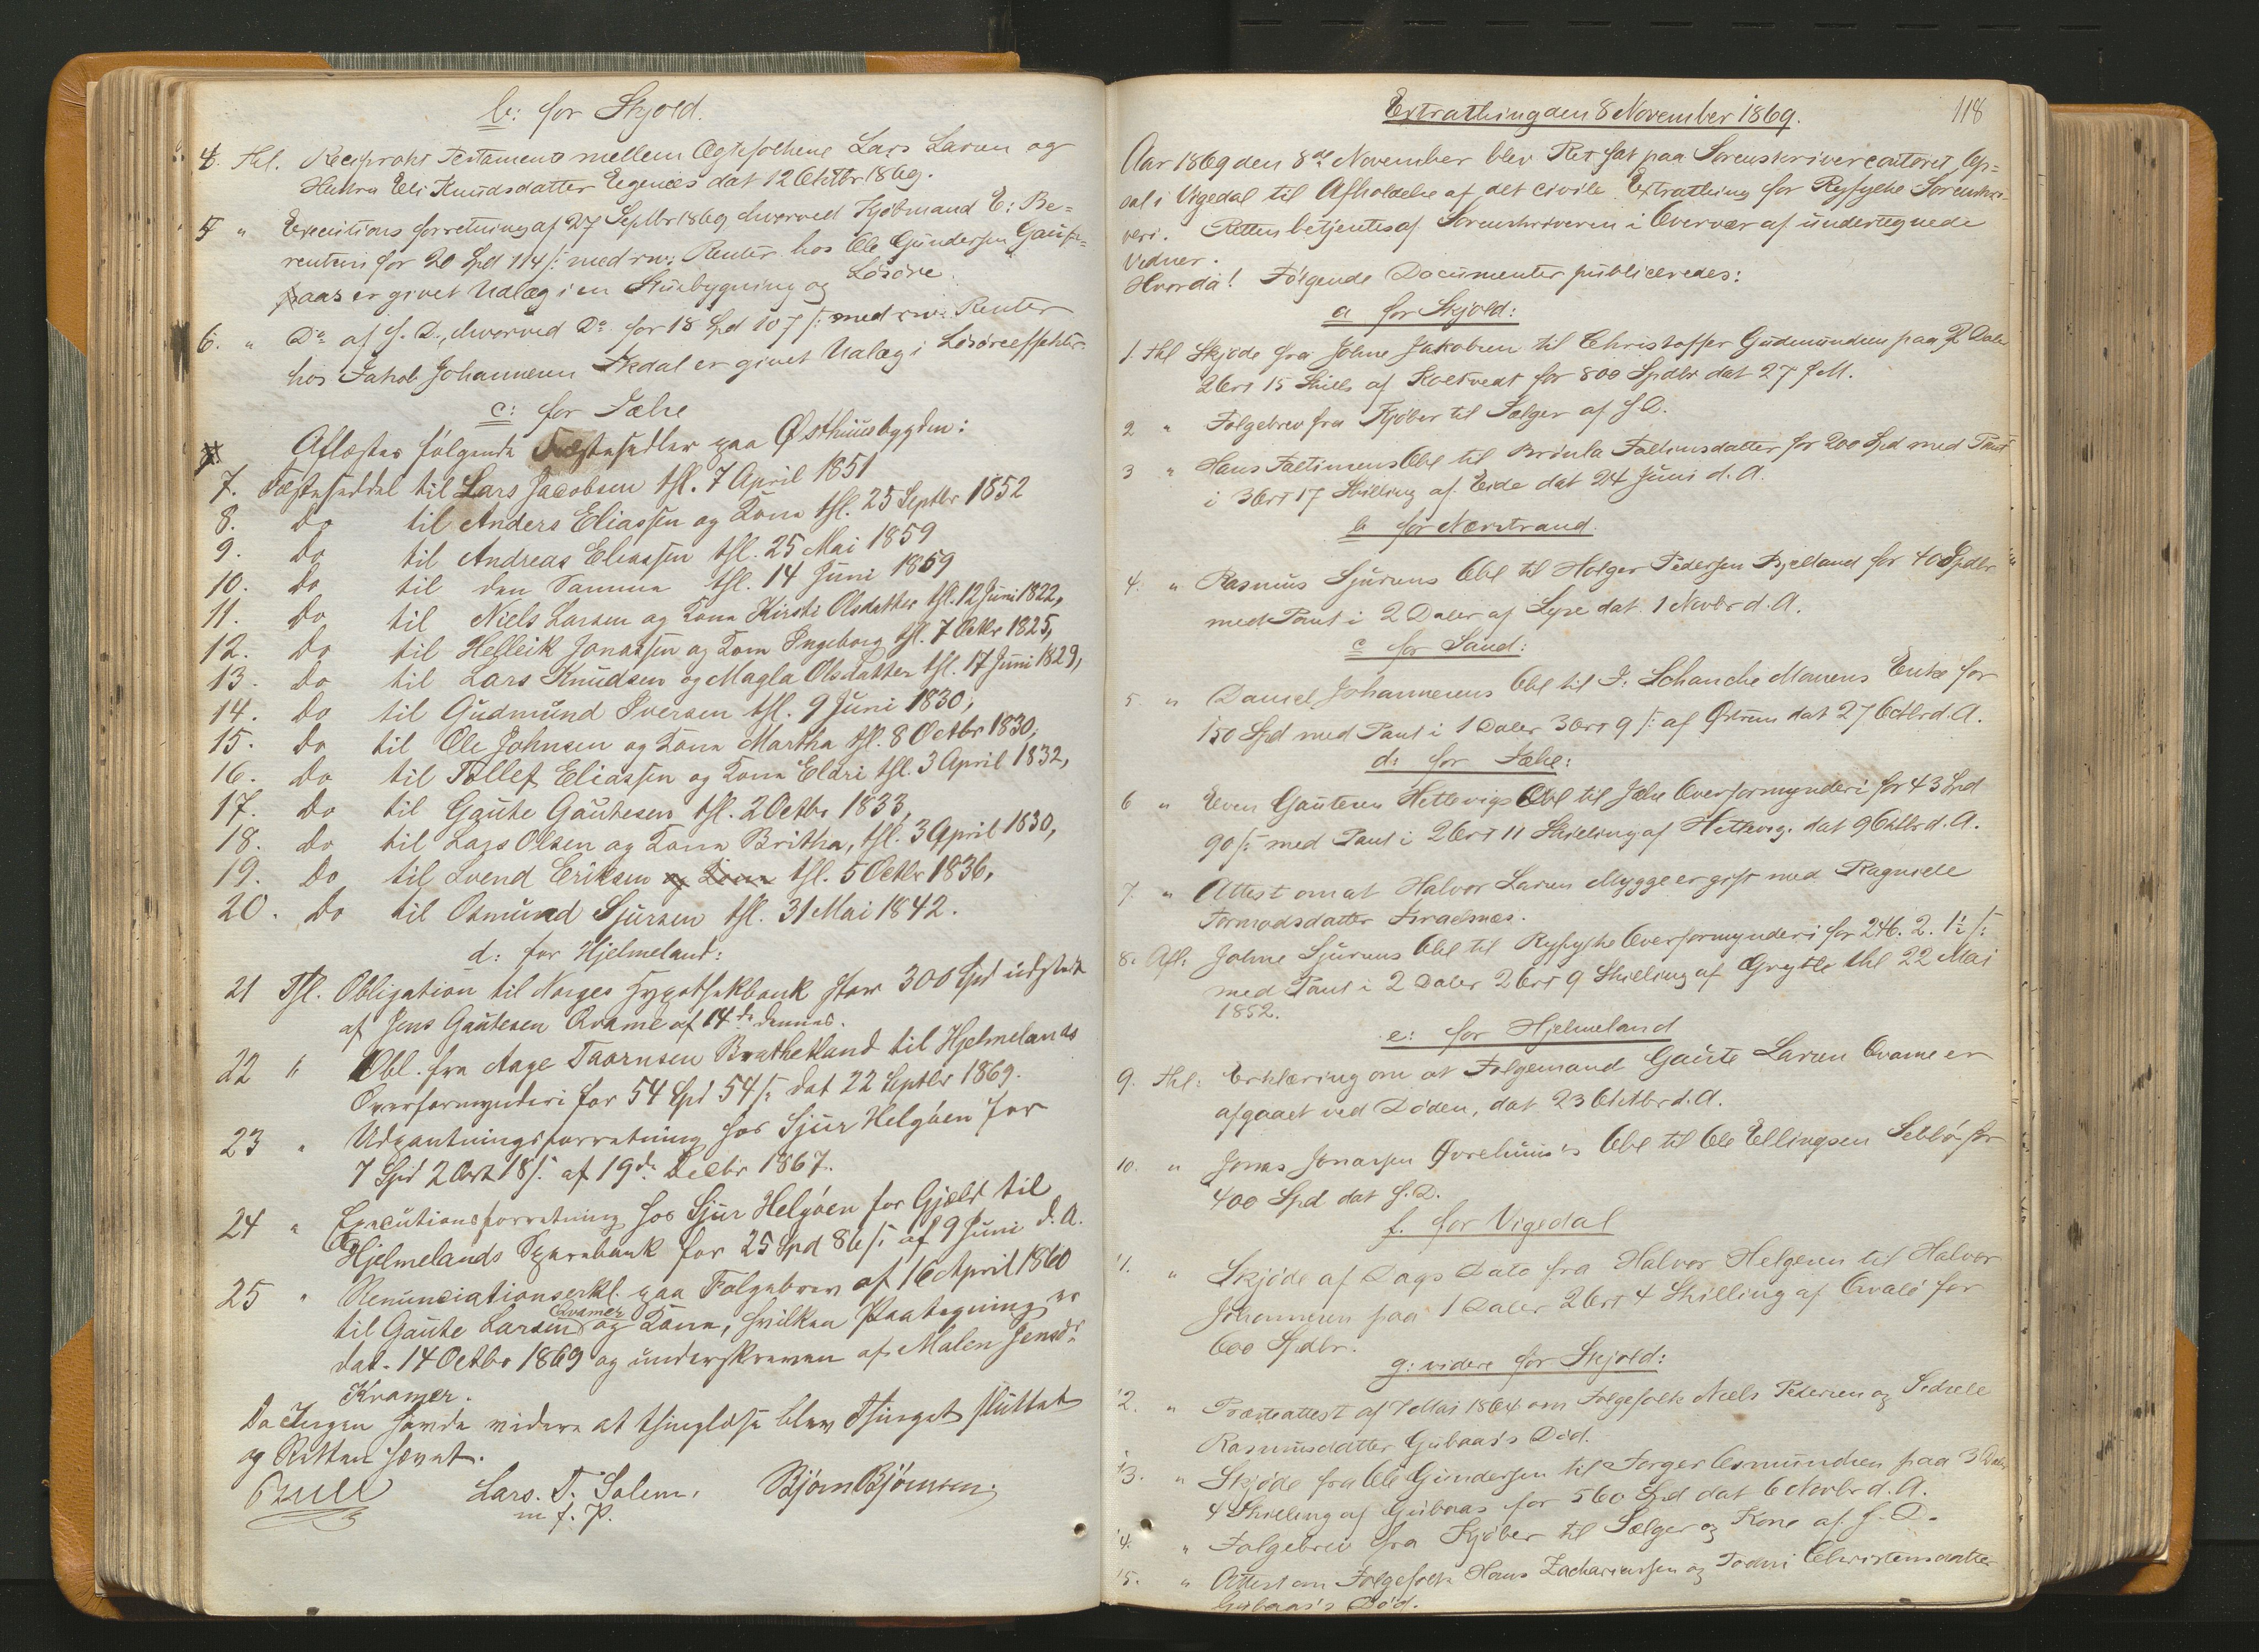 b: for Skjold.
4. thl. Reciprokt Testament mellem Ægtefolkene Lars Larsen og
Hustru Eli Knudsdatter Eegenæs dat 12 Oktbr 1869.
5 " Executionsforretning af 27 Septbr 1869 hvorved Kjøbmand E: Be-
rentsen for 20 Spd 114 /: med rw: Renter hos Ole Gundersen
er givet Udlæg i en Stuebygning og Løsøre.
6. " Do af s. D., hvorved Do for 18 Spd 107 /: med rw: Renter
hos Jakob Johannesen er givet Udlæg i Løsøreeffekter.
c: for Jælse
Aflæstes følgende Fæstesedler paa Østhuusbygden:
7. Fæsteseddel til Lars Jacobsen thl. 7 April 1851
8. do til Anders Eliassen og Kone thl. 25 Septbr 1852
9. do til Andreas Eliassen thl. 25 Mai 1859
10. do til den Samme thl. 14 Juni 1859
11. do til Niels Larsen og Kone Kirsti Olsdatter thl. 12 Juni 1822,
12. do til Helleik Jonassen og Kone Ingeborg thl. 7 Octbr 1825,
13. do til Lars Knudsen og Magla Olsdatter thl. 17 Juni 1829,
14. do til Gudmund Iversen thl. 9 Juni 1830,
15. do til Ole Johnsen og Kone Martha thl. 8 Octbr 1830,
16. do til Tollef Eliassen og Kone Eldri thl. 3 April 1832,
17. do til Gaute Gautesen thl. 2 Octbr 1833,
18. do til Lars Olsen og Kone Britha, thl. 3 April 1830,
19. do til Svend Eriksen og Kone thl. 5 Octbr 1836,
20. do til Osmund Sjursen thl. 31 Mai 1842.
d: for Hjelmeland:
21 Thl. Obligation til Norges Hypothekbank stor 300 Spd udstedt
af Jens Gautesen Qvame af 14de dennes.
22 " Obl. fra Aage Taarnsen til Hjelmelands
Overformynderi for 54 Spd 54 /: dat 22 Septbr 1869.
23 " Udpantningsforretning hos Sjur Helgøen for
7 Spd 2 Ort 18 /: af 19de Decbr 1867.
24 " Executionsforretning hos Sjur Helgøen for Gjæld til
Hjelmelands Sparebank for 25 Spd 86 /: af 9 Juni d. A.
25 " Renunciationserkl. paa Folgebrev af 16 April 1860
til Gaute Larsen Qvamer og Kone, hvilken Paategning er
dat. 14 Octbr 1869 og underskreven af Malen Jensdr
Kvamer.
Da Ingen havde videre at thinglæse blev Thinget sluttet
og Retten hævet.
Lars. T. Solem. Bjørn Bjørnsen.
m. f. P.
Extrathing den 8 November 1869. 118
Aar 1869 den 8de November blev Ret sat paa Sorenskrivercontoret Op-
sal i Vigedal til Afholdelse af det civile Extrathing for Ryfylke Sorenskri-
veri. Retten betjentes af Sorenskriveren i Overvær af undertegnede
Vidner.
Hvorda! Følgende Documenter publiceredes:
a for Skjold:
1. thl Skjøde fra Johne Jakobsen til Christoffer Gudmundsen paa
2 Ort 15 Skill af for 800 Spdlr dat 27 f. M.
2 " Folgebrev fra Kjøber til Sælger af s. D.
3 " Hans Obl til Faltinsdatter for 200 Spd med Pant
i 3 Ort 17 Skilling af Eide dat 24 Juni d. A.
b for Nærstrand
4. " Rasmus Sjursens Obl til Holger Pedersen Bjelland for 40 Spdlr
med Pant i 2 Daler af Lyse dat 1 Novbr d. A.
c for Sand:
5. " Daniel Johannesens Obl til J. Schanche Monsens Enke for
150 Spd med Pant i 1 Daler 3 Ort 9 /: af dat 27 Octbr d. A.
d: for Jælse:
6 " Even Gautesen Hettevigs Obl til Jælse Overformynderi for 43 Spd
90 /: med Pant i 2 Ort 11 Skilling af Hettevig dat 9 Oktbr d. A.
7. " Attest om at Halvor Larsen Mygge er gift med Ragnilde
Tormodsdatter
8. Afl: Johne Sjursens Obl til Ryfylke Overformynderi for 246. 2. 1½ /:
med Pant i 2 Daler 2 Ort 9 Skilling af thl 22 Mai
1852.
e: for Hjelmeland
9. thl: Erklæring om at Folgemand Gaute Larsen Qvame er
afgaaet ved Døden, dat 23 Oktbr d. A.
10. " Jonas Jonassen Obl til Ole Ellingsen for
400 Spd dat s. D.
f. for Vigedal
11. " Skjøde af Dags Dato fra Halvor Helgesen til Halvor
Johannesen paa 1 Daler 2 Ort 4 Skilling af for
600 Spdlr.
g: videre for Skjold:
12. " Præsteattest af 7 Mai 1864 om Folgefolk Niels Petersen og
Rasmusdatter Gubaas's Død.
13. " Skjøde fra Ole Gundersen til Torger Osmundsen paa 3 Daler
4 Skilling af Gubaas for 560 Spd dat 6 Novbr d. A.
14. " Folgebrev fra Kjøber til Sælger og Kone af s. D.
15. " Attest om Folgefolk Hans Zachariassen og Christensdatter
Gubaas's Død.